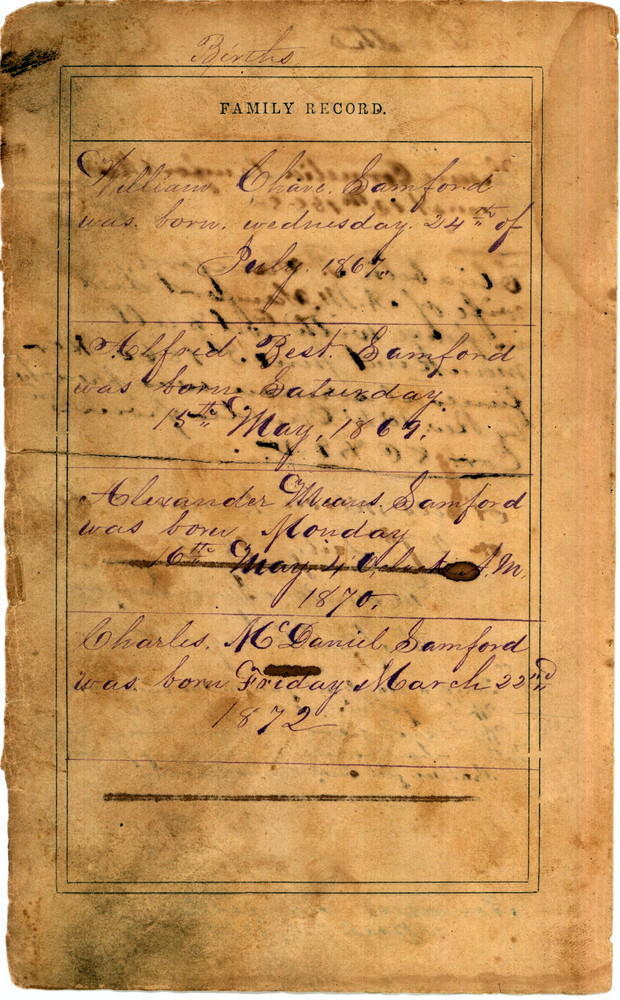 Births
FAMILY RECORD.
William Chave. Samford
was. born. wednesday. 24th of
July. 1867.
Alfred. Best. Samford
was born Saturday.
15th May, 1869.
Alexander Means Samford
was born Monday
16th May 4 Oclock A.M.
1870.
Charles. McDaniel Samford
was. born Friday March 22nd
1872